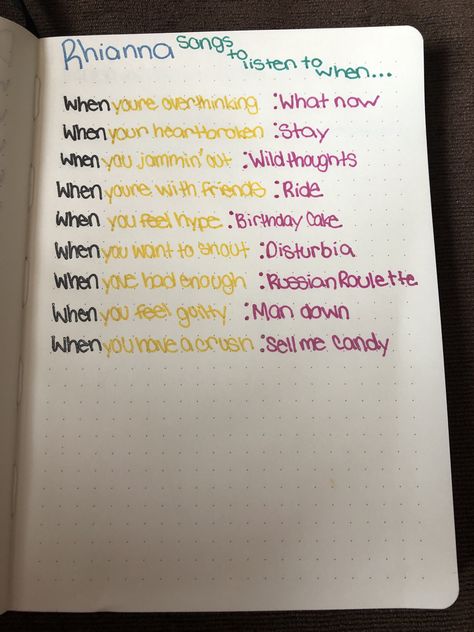 Rhianna songs to listen to when...
When youre overthinking : What now
When your heartbroken : Stay
When you jammin' out : Wild thoughts
When youre with friends : Ride
When you feel hype : Birthday Cake
When you want to shout : Disturbia
When youve had enough : Russian Roulette
When you feel guilty : Man down
When you have a crush : Sell me candy